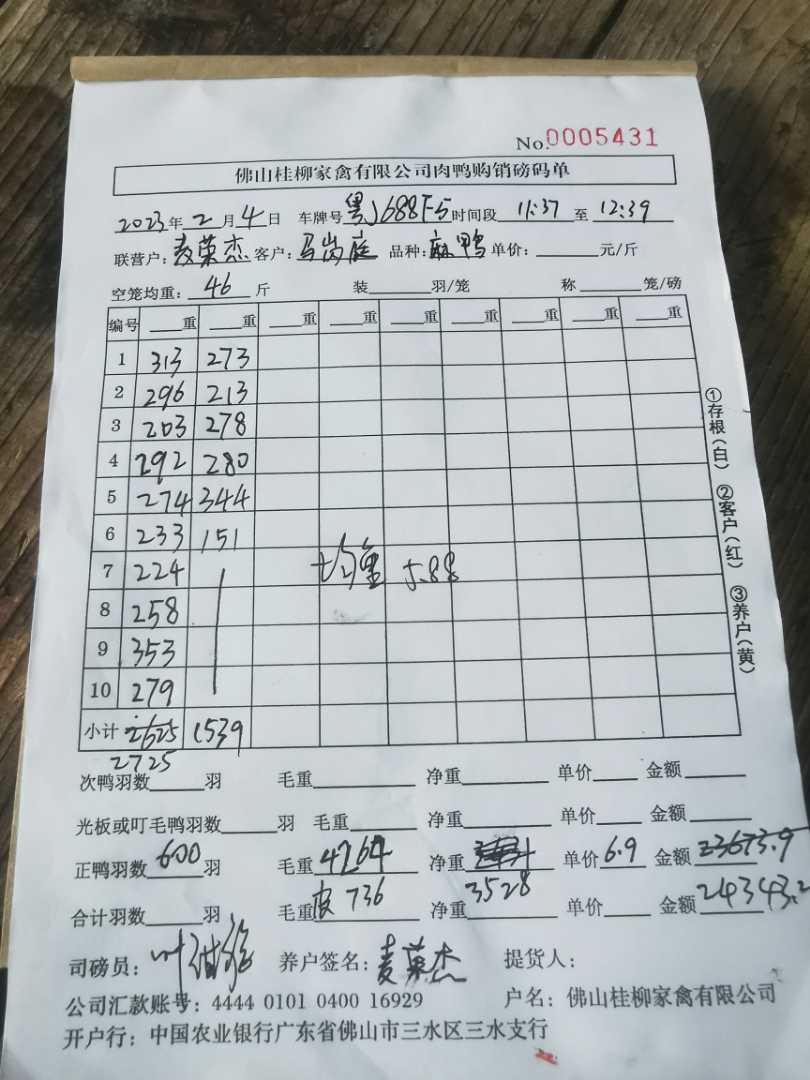 No.0005431
佛山桂柳家禽有限公司肉鸭购销磅码单
2023年2月4日 车牌号粤J688F5时间段 11:37 至 12:39
联营户:麦荣杰 客户:马岗庭 品种:麻鸭 单价:____元/斤
空笼均重: 46 斤 装____羽/笼 称____笼/磅
编号 __重 __重 __重 __重 __重 __重 __重 __重 __重
1 313 273
2 296 213
3 203 278
4 292 280
5 274 344
6 233 151
7 224 均重 5.88
8 258
9 353
10 279
小计 2625 1539
2725
次鸭羽数____羽 毛重____ 净重____ 单价____ 金额____
光板或叮毛鸭羽数____羽 毛重____ 净重____ 单价____ 金额____
正鸭羽数600羽 毛重4264 净重 单价6.9 金额23673.9
合计羽数____羽 毛重皮736 净重3528 单价____ 金额24343.2
司磅员:叶 养户签名:麦荣杰 提货人:
公司汇款账号:4444 0101 0400 16929 户名:佛山桂柳家禽有限公司
开户行:中国农业银行广东省佛山市三水区三水支行
①存根(白) ②客户(红) ③养户(黄)